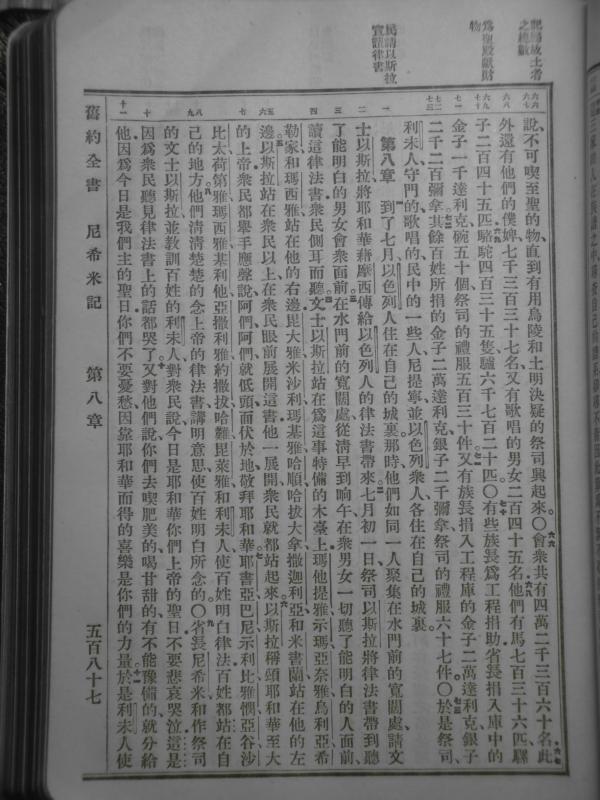 記歸故土者
之總數
爲聖殿獻財
物
民請以斯拉
宣讀律書
說不可喫至聖的物直到有用烏陵和土明決疑的祭司興起來○會衆共有四萬二千三百六十名此
外還有他們的僕婢七千三百三十七名又有歌唱的男女二百四十五名他們有馬七百三十六匹騾
子二百四十五匹駱駝四百三十五隻驢六千七百二十匹○有些族長爲工程捐助省長捐入庫中的
金子一千達利克碗五十個祭司的禮服五百三十件又有族長捐入工程庫的金子二萬達利克銀子
二千二百彌拿其餘百姓所捐的金子二萬達利克銀子二千彌拿祭司的禮服六十七件○於是祭司
利未人守門的歌唱的民中的一些人尼提寧並以色列衆人各住在自己的城裏
第八章 到了七月以色列人住在自己的城裏那時他們如同一人聚集在水門前的寬闊處請文
士以斯拉將耶和華藉摩西傳給以色列人的律法書帶來七月初一日祭司以斯拉將律法書帶到聽
了能明白的男女會衆面前在水門前的寬闊處從清早到晌午在衆男女一切聽了能明白的人面前
讀這律法書衆民側耳而聽文士以斯拉站在爲這事特備的木臺上瑪他提雅示瑪亞奈雅烏利亞希
勒家和瑪西雅站在他的右邊毘大雅米沙利瑪基雅哈順哈拔大拿撒迦利亞和米書蘭站在他的左
邊以斯拉站在衆民以上在衆民眼前展開這書他一展開衆民就都站起來以斯拉稱頌耶和華至大
的上帝衆民都舉手應聲說阿們阿們就低頭面伏於地敬拜耶和華耶書亞巴尼示利比雅憫亞谷沙
比太荷第雅瑪西雅基利他亞撒利雅約撒拔哈難毘萊雅和利未人使百姓明白律法百姓都站在自
己的地方他們清清楚楚的念上帝的律法書講明意思使百姓明白所念的○省長尼希米和作祭司
的文士以斯拉並敎訓百姓的利未人對衆民說今日是耶和華你們上帝的聖日不要悲哀哭泣這是
因爲衆民聽見律法書上的話都哭了又對他們說你們去喫肥美的喝甘甜的有不能豫備的就分給
他因爲今日是我們主的聖日你們不要憂愁因靠耶和華而得的喜樂是你們的力量於是利未人使
舊約全書 尼希米記 第八章 五百八十七